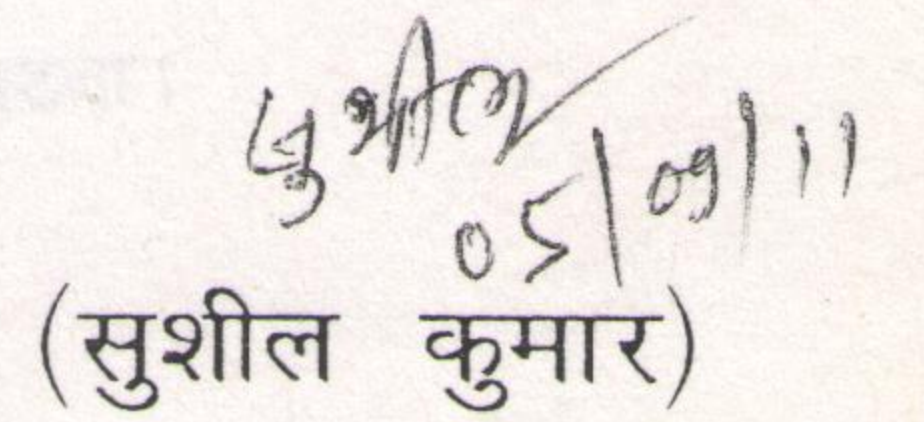 सुशील
05/09/11
(सुशील कुमार)